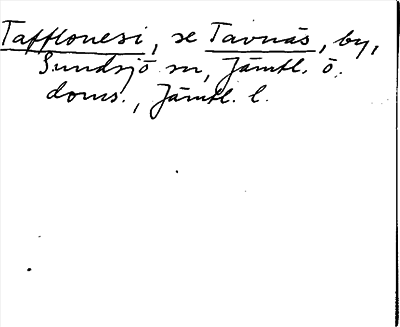 Tafflonesi, se Tavnäs, by,
Sundsjö sn, Jämtl. ö.
doms., Jämtl. l.